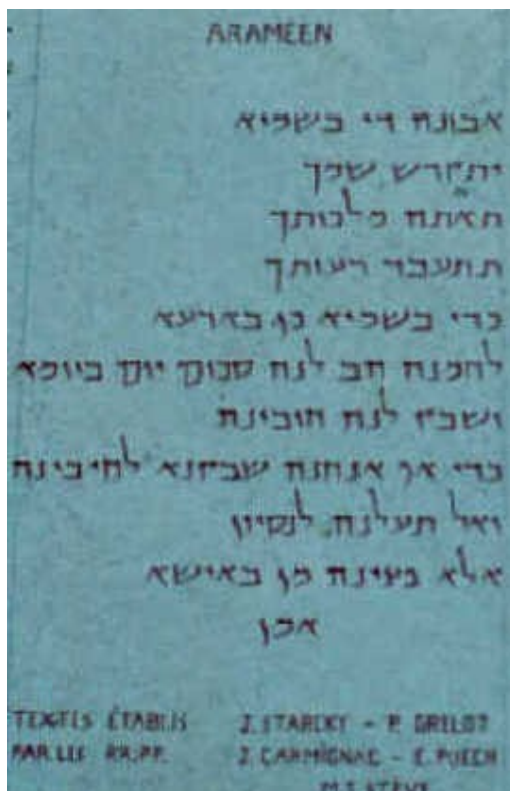 ARAMÉEN
אבונה די בשמיא
יתקדש שמך
תאתה מלכותך
תתעבד רעותך
כדי בשמיא כן בארעא
לחמנה הב לנה סכוק יום ביומא
ושבק לנה חובינה
כדי אף אנחנה שבקנא לחיבינה
ואל תעלנה לנסיון
אלא פצינה מן באישא
אמן
TEXTES ÉTABLIS J. STARCKY - P. GRELOT
PAR LES RR.PP. J. CARMIGNAC - E. PUECH